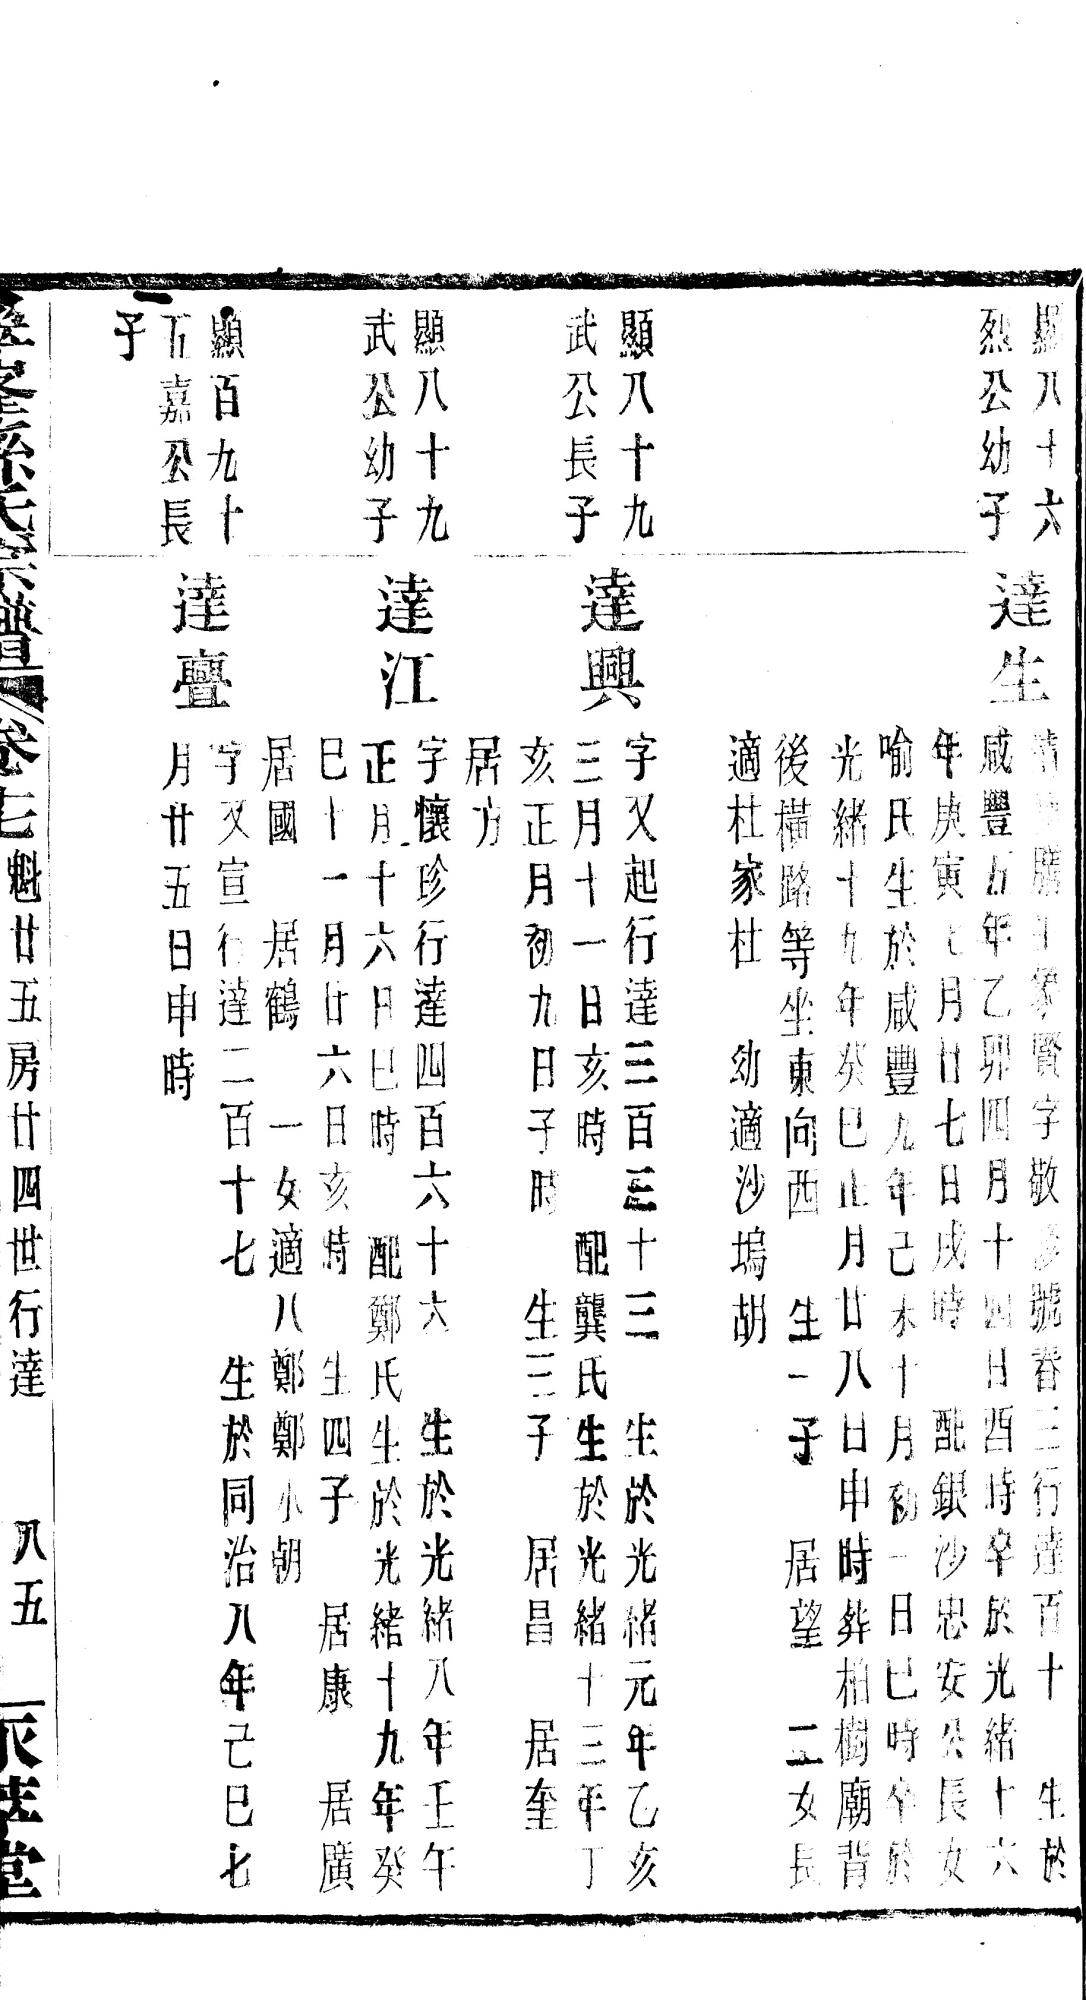 顯八十六
烈公幼子
達生
賢字敬號春三行達百十 生於
咸豐五年乙卯四月十四日酉時卒於光緒十六
年庚寅七月廿七日戌時 配銀沙忠安公長女
喻氏生於咸豐九年己未十月初一日巳時卒於
光緒十九年癸巳正月廿八日申時葬柏樹廟背
後橫路等坐東向西 生一子 居望 二女長
適杜家杜 幼適沙塢胡
顯八十九
武公長子
達興
字又起行達三百三十三 生於光緒元年乙亥
三月十一日亥時 配龔氏生於光緒十三年丁
亥正月初九日子時 生三子 居昌 居奎
居方
顯八十九
武公幼子
達江
字懷珍行達四百六十六 生於光緒八年壬午
正月十六日巳時 配鄭氏生於光緒十九年癸
巳十一月廿六日亥時 生四子 居康 居廣
居國 居鶴 一女適八鄭鄭小朝
顯百九十
五嘉公長
子
達亹
字又宣行達二百十七 生於同治八年己巳七
月廿五日申時
孫氏宗譜 卷七 魁廿五房廿四世行達 八五 堂